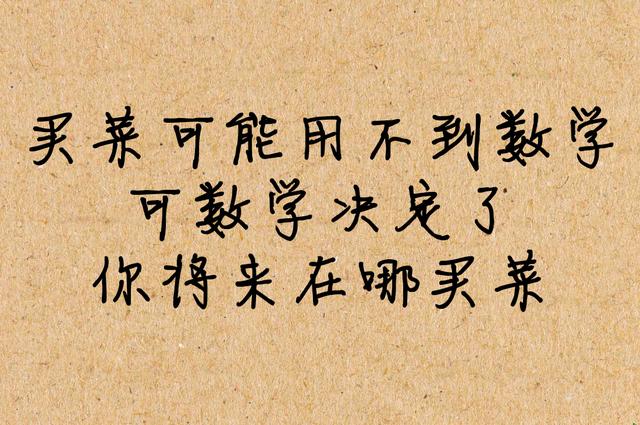 买菜可能用不到数学
可数学决定了
你将来在哪买菜